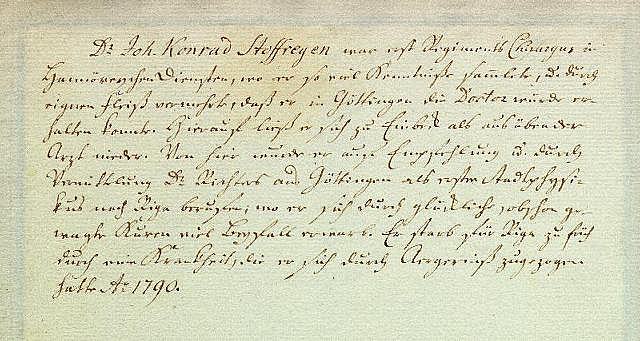 Dr. Joh. Konrad Stoffregen war erst Regiments Chirurgus in
Hannöverschen Diensten, wo er so viel Kenntniße sammlete, u. durch
eignen Fleiß vermehrte, daß er in Göttingen die Doctor würde er-
halten konnte. Hierauf ließ er sich zu Einbeck als ausübender
Arzt nieder. Von hier wurde er auf Empfehlung u. durch
Vermittlung Dr. Richters aus Göttingen als erster Stadtphysi-
kus nach Riga berufen, wo er sich durch glückliche obschon ge-
wagte Kuren viel Beyfall erwarb. Er starb für Riga zu früh
durch eine Krankheit, die er sich durch Aergerniß zugezogen
hatte Ao 1790.